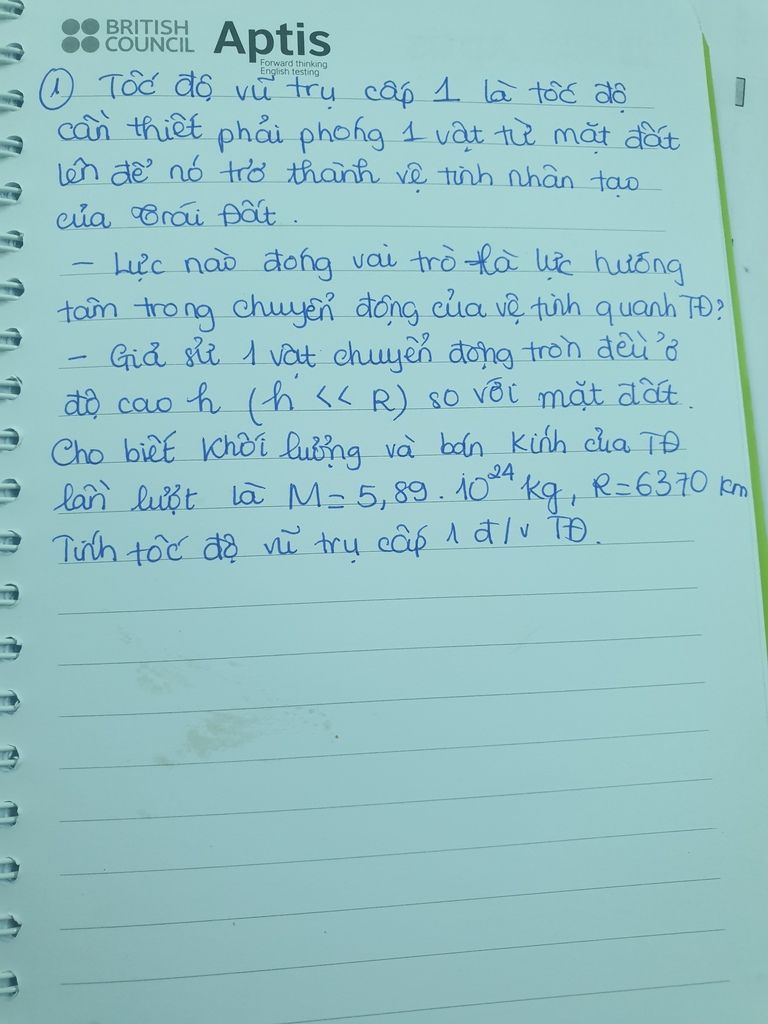 BRITISH
COUNCIL
Aptis
Forward thinking
English testing
① Tốc độ vũ trụ cấp 1 là tốc độ
cần thiết phải phóng 1 vật từ mặt đất
lên để nó trở thành vệ tinh nhân tạo
của Trái Đất.
- Lực nào đóng vai trò là lực hướng
tâm trong chuyển động của vệ tinh quanh TĐ?
- Giả sử 1 vật chuyển động tròn đều ở
độ cao h (h << R) so với mặt đất.
Cho biết khối lượng và bán kính của TĐ
lần lượt là M = 5,89 . 10²⁴ kg, R = 6370 km
Tính tốc độ vũ trụ cấp 1 đ/v TĐ.